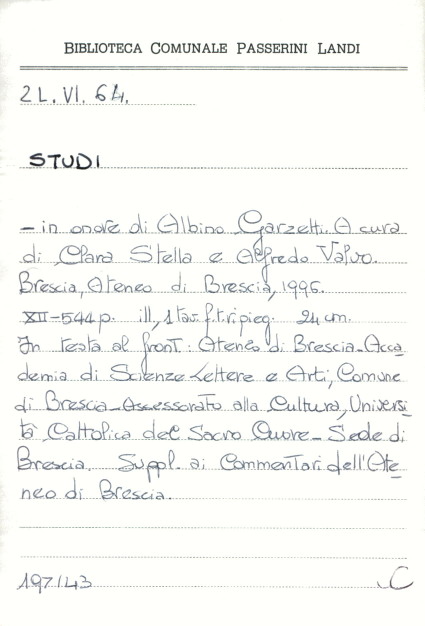 BIBLIOTECA COMUNALE PASSERINI LANDI
2L.VI.64.
STUDI
- in onore di Albino Garzetti. A cura
di Clara Stella e Alfredo Valvo.
Brescia, Ateneo di Brescia, 1996.
XII-544 p. ill, 1 tav. f.t. ripieg. 24 cm.
In testa al front.: Ateneo di Brescia-Acca
demia di Scienze Lettere e Arti, Comune
di Brescia-Assessorato alla Cultura, Universi
tà Cattolica del Sacro Cuore-Sede di
Brescia. Suppl. ai Commentari dell'Ate
neo di Brescia.
197143 C